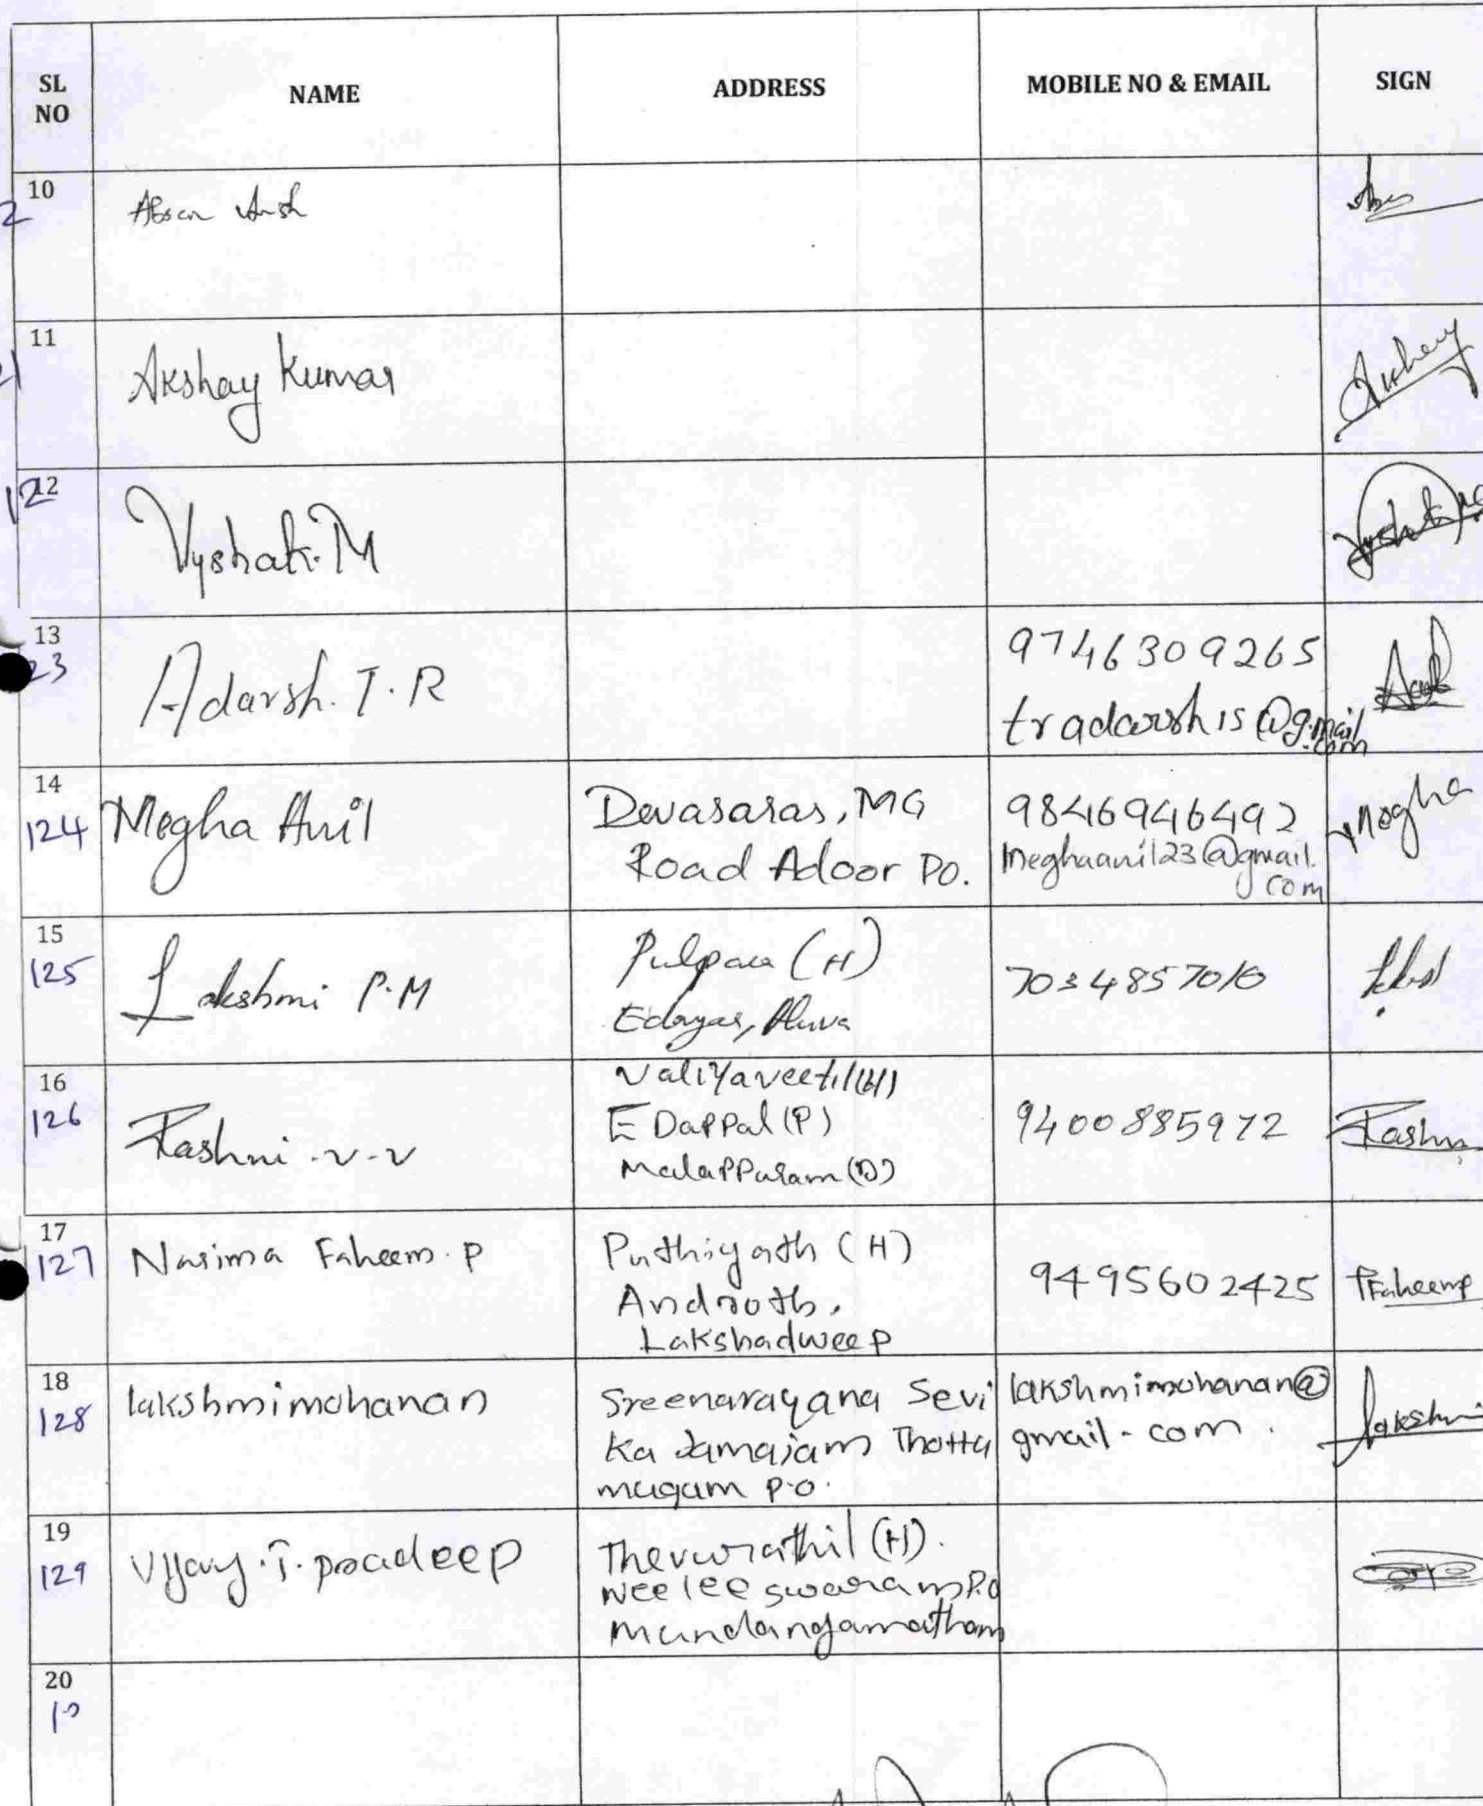 SL NO
NAME
ADDRESS
MOBILE NO & EMAIL
SIGN
10
11
Akshay Kumar
Akshay
12
12
Vyshak.M
13
23
Adarsh.T.R
9746309265
tradarsh15@gmail
.com
14
124
Megha Anil
Devasaras, MG
Road Adoor PO.
9846946492
meghaanil23@gmail.
com
Megha
15
125
Lakshmi P.M
Pulpara (H)
Edayar, Aluva
7034857010
16
126
Rashni .v.v
Valiyaveetil(H)
EDappal(P)
Malappuram(D)
9400885972
Rashni
17
127
Nasima Faheem.P
Puthiyath (H)
Androth,
Lakshadweep
9495602425
Faheemp
18
128
lakshmimohanan
Sreenarayana Sevi
Ka Samajam Thottu
mugam P.O.
lakshmimohanan@
gmail.com.
Lakshmi
19
129
Vijay.T.pradeep
(H).
Neeleeswaram P.O
20